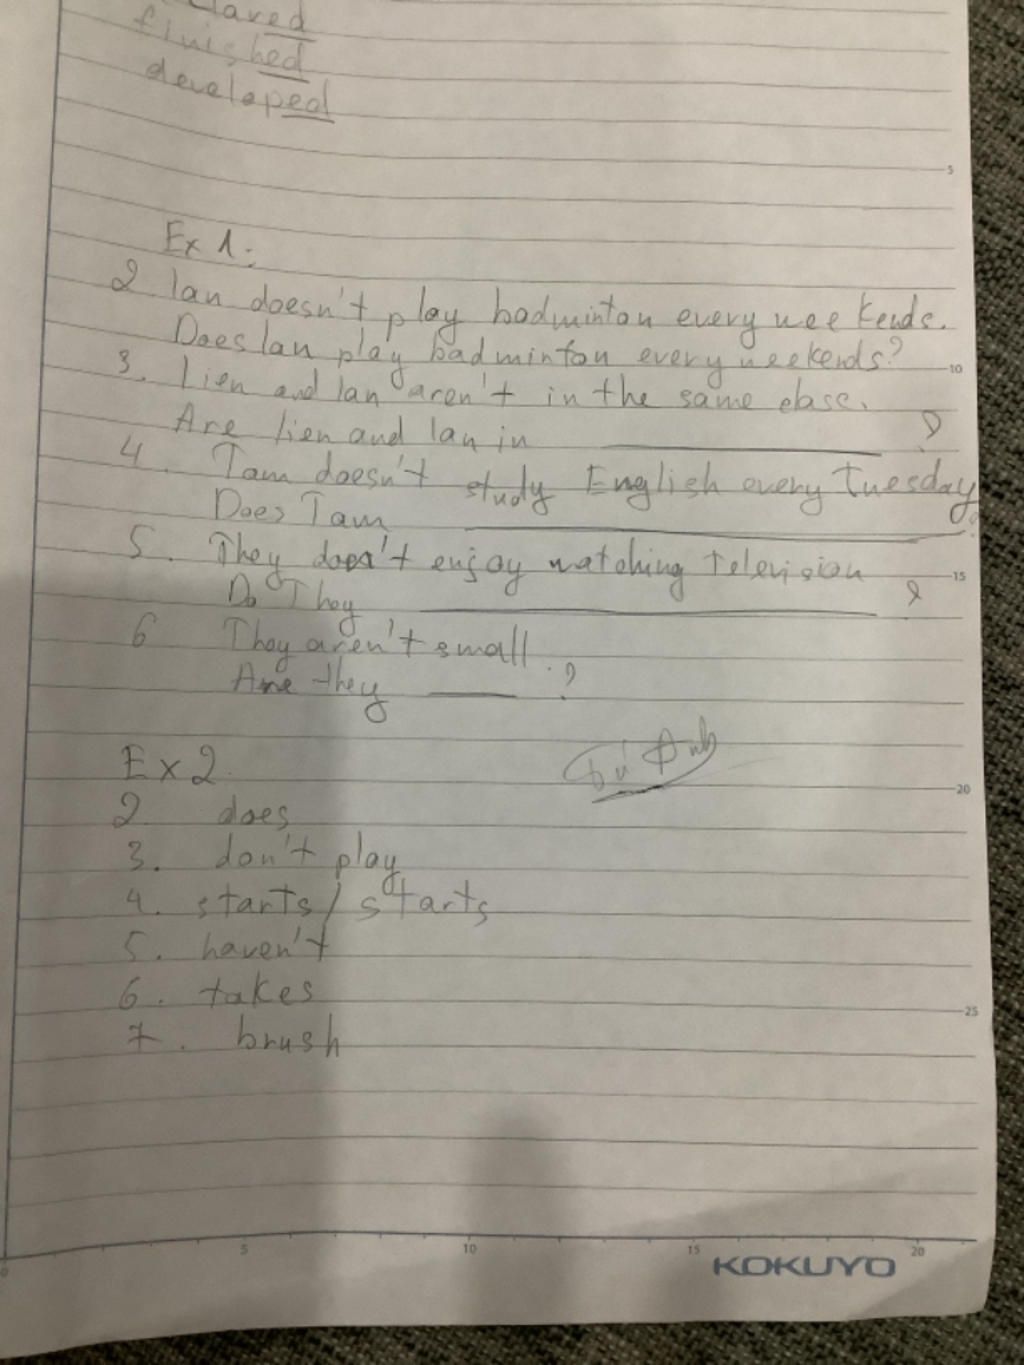 finished
developed
5
Ex 1:
2 lan doesn't play badminton every weekends.
Does lan play badminton every weekends?
10
3. Lien and lan aren't in the same class.
Are lien and lan in ?
4. Tam doesn't study English every Tuesday
Does Tam ?
5. They don't enjoy watching television
15
Do They ?
6 They aren't small.
Are they ?
Ex 2
20
2 does
3. don't play
4. starts/starts
5. haven't
6. takes
25
7. brush
5 10 15 20
KOKUYO